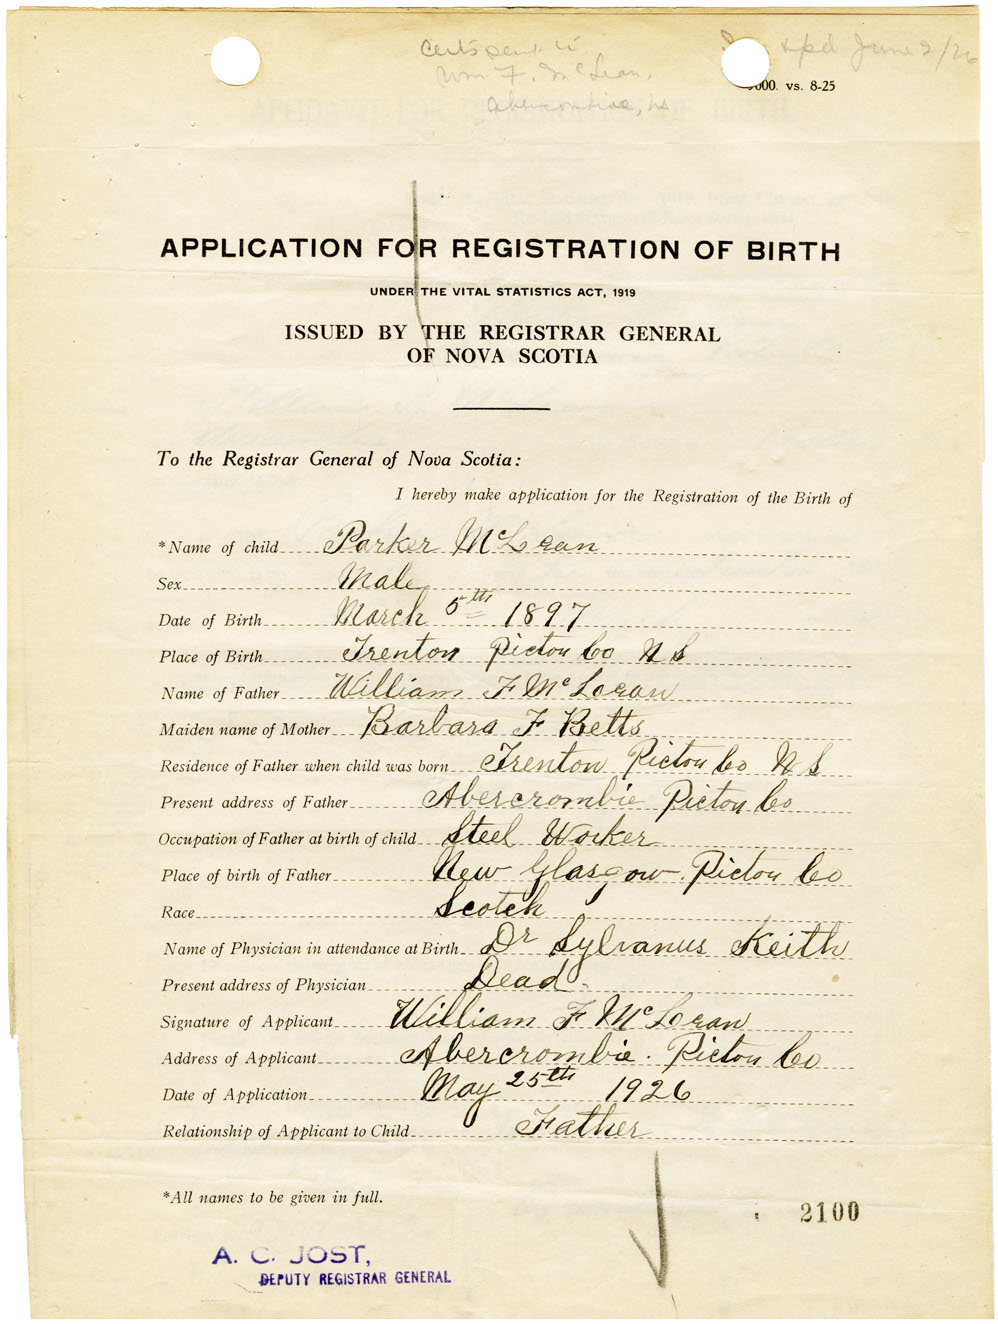 Certs sent to
Wm F. McLean,
Abercrombie, NS
& pd June 2/26
000. vs. 8-25
APPLICATION FOR REGISTRATION OF BIRTH
UNDER THE VITAL STATISTICS ACT, 1919
ISSUED BY THE REGISTRAR GENERAL
OF NOVA SCOTIA
To the Registrar General of Nova Scotia:
I hereby make application for the Registration of the Birth of
*Name of child Parker McLean
Sex Male
Date of Birth March 5th 1897
Place of Birth Trenton Pictou Co N S
Name of Father William F McLean
Maiden name of Mother Barbara F Betts
Residence of Father when child was born Trenton Pictou Co N S
Present address of Father Abercrombie Pictou Co
Occupation of Father at birth of child Steel Worker
Place of birth of Father New Glasgow. Pictou Co
Race Scotch
Name of Physician in attendance at Birth Dr Sylvanus Keith
Present address of Physician Dead.
Signature of Applicant William F McLean
Address of Applicant Abercrombie. Pictou Co
Date of Application May 25th 1926
Relationship of Applicant to Child Father
*All names to be given in full.
2100
A. C. JOST,
DEPUTY REGISTRAR GENERAL